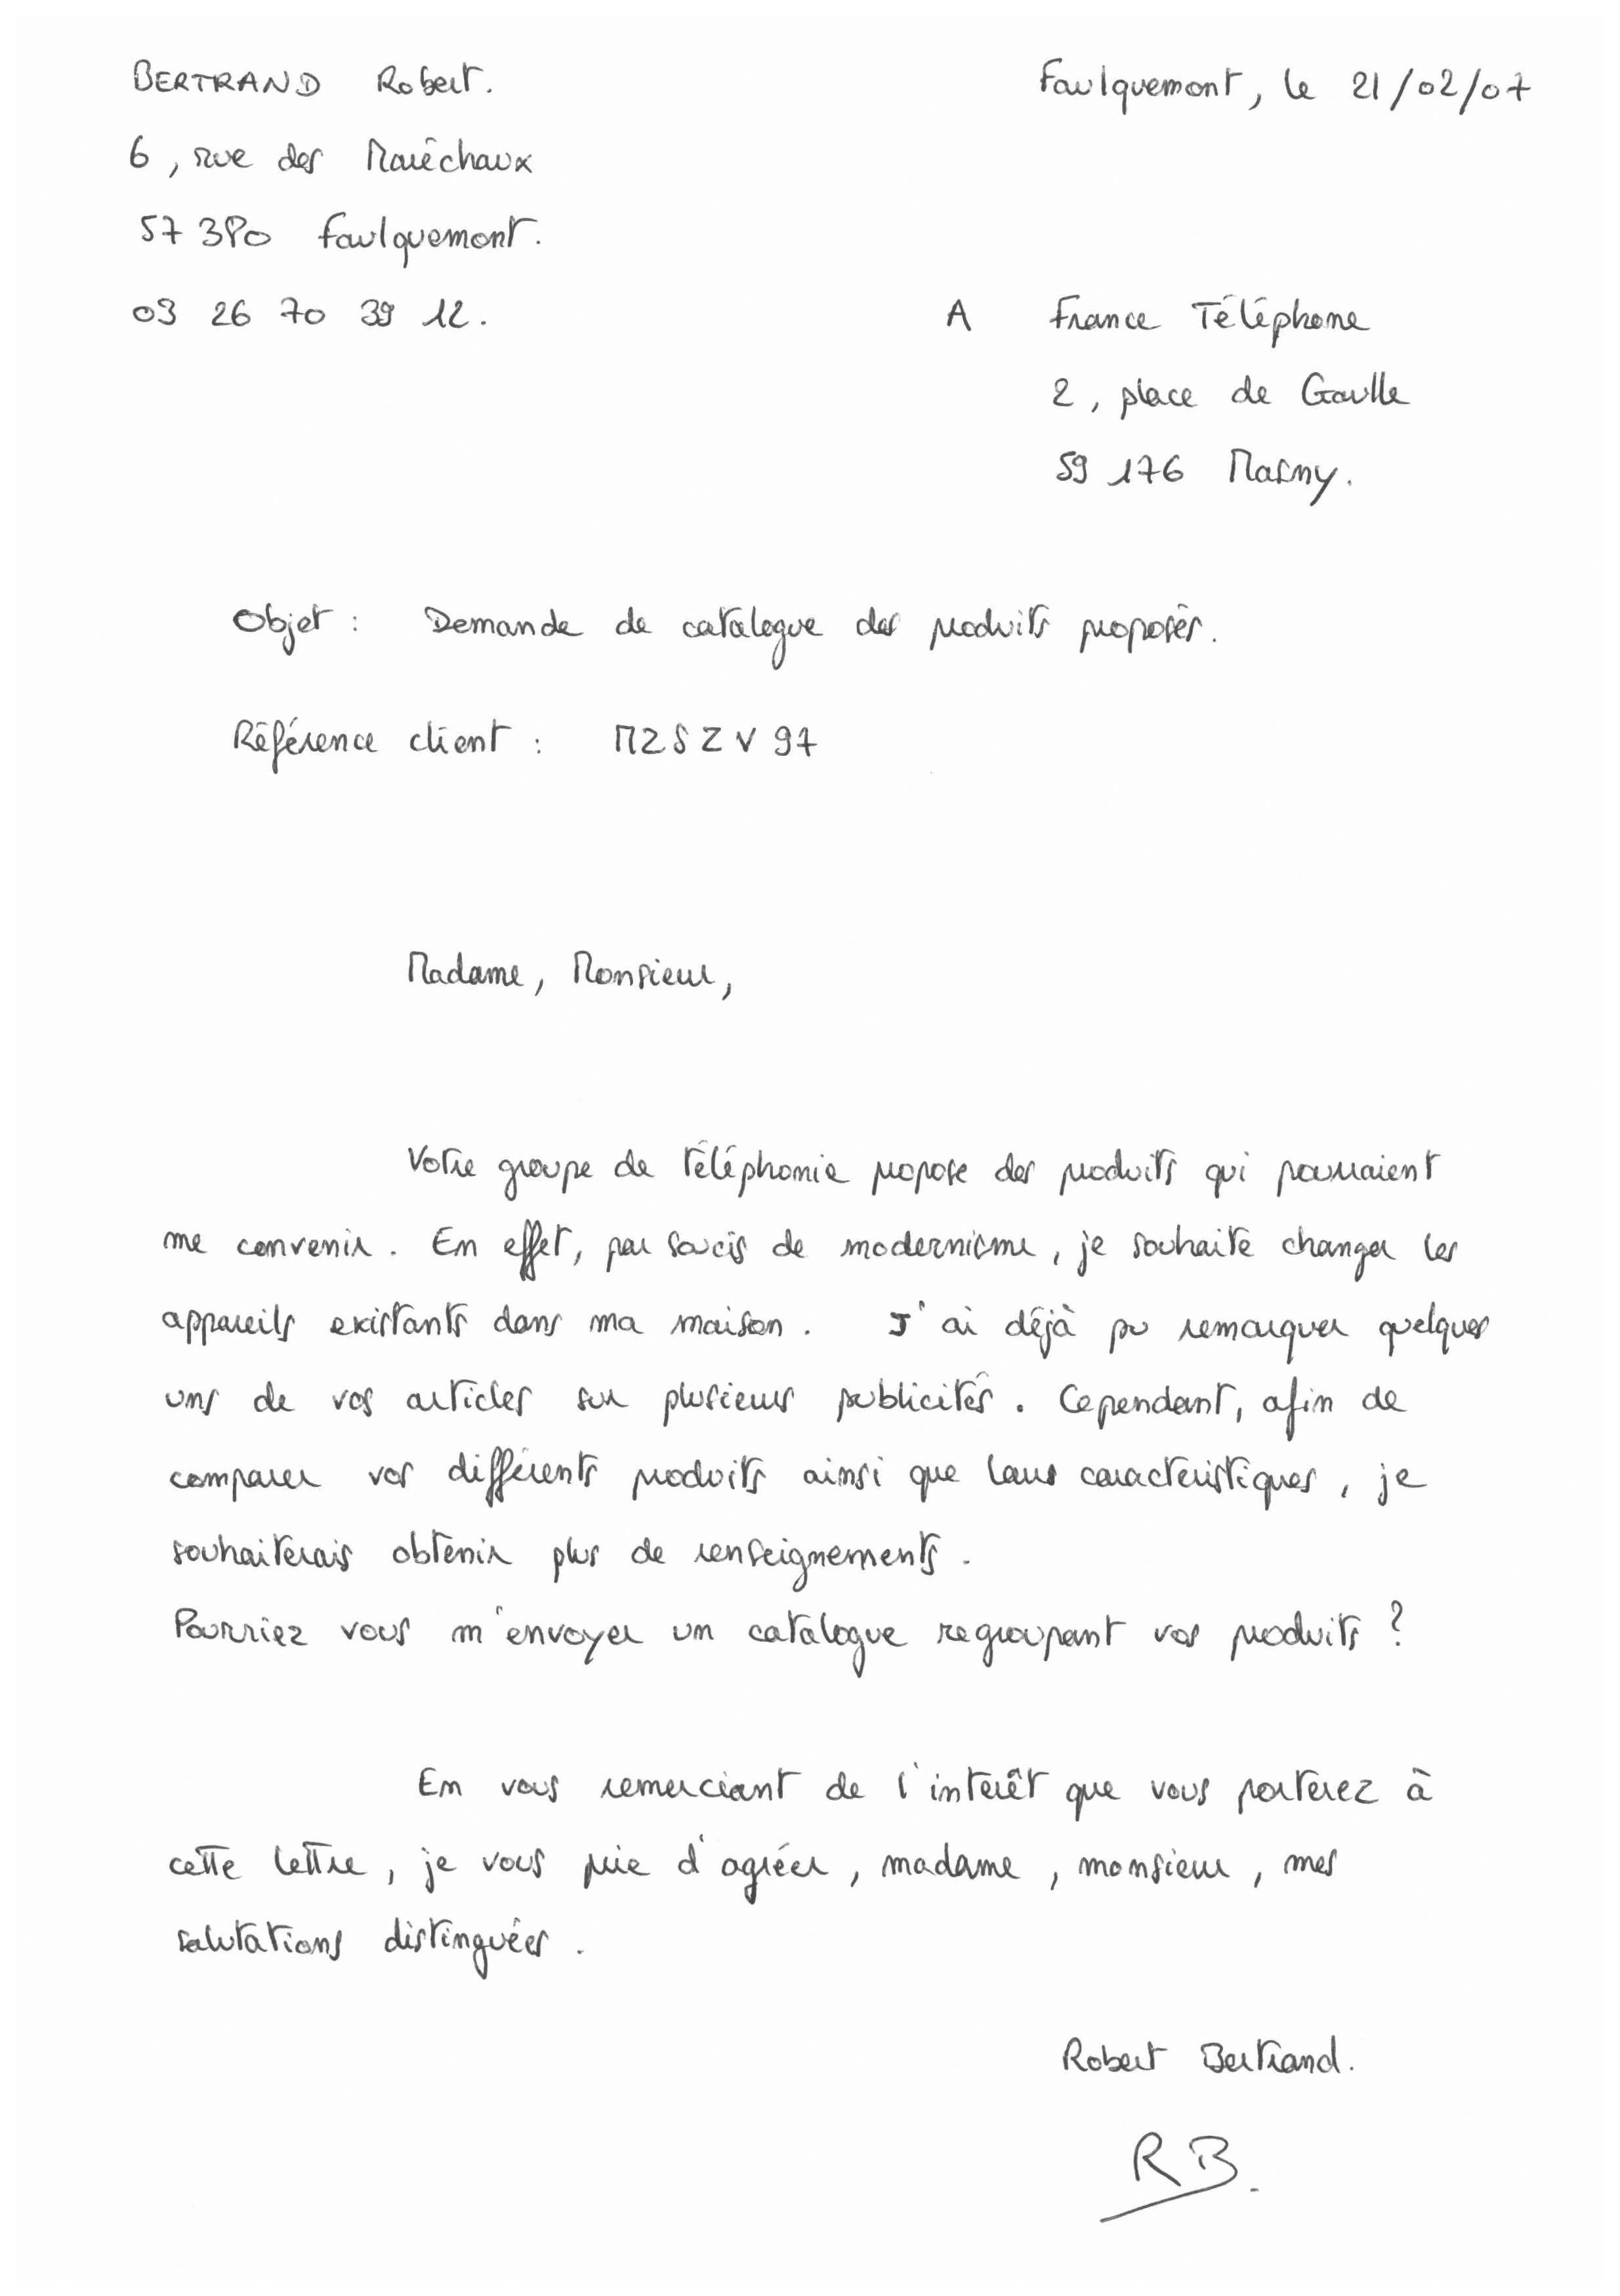 BERTRAND Robert.
Faulquemont, le 21/02/07
6, rue des Maréchaux
57 380 Faulquemont.
03 26 70 39 12.
A France Téléphone
2, place de Gaulle
59 176 Masny.
Objet : Demande de catalogue des produits proposés.
Référence client : MZSZV97
Madame, Monsieur,
Votre groupe de téléphonie propose des produits qui pourraient
me convenir. En effet, par soucis de modernisme, je souhaite changer les
appareils existants dans ma maison. J'ai déjà pu remarquer quelques
uns de vos articles sur plusieurs publicités. Cependant, afin de
comparer vos différents produits ainsi que leurs caractéristiques, je
souhaiterais obtenir plus de renseignements.
Pourriez vous m'envoyer un catalogue regroupant vos produits ?
En vous remerciant de l'interêt que vous porterez à
cette lettre, je vous prie d'agréer, madame, monsieur, mes
salutations distinguées.
Robert Bertrand.
RB.